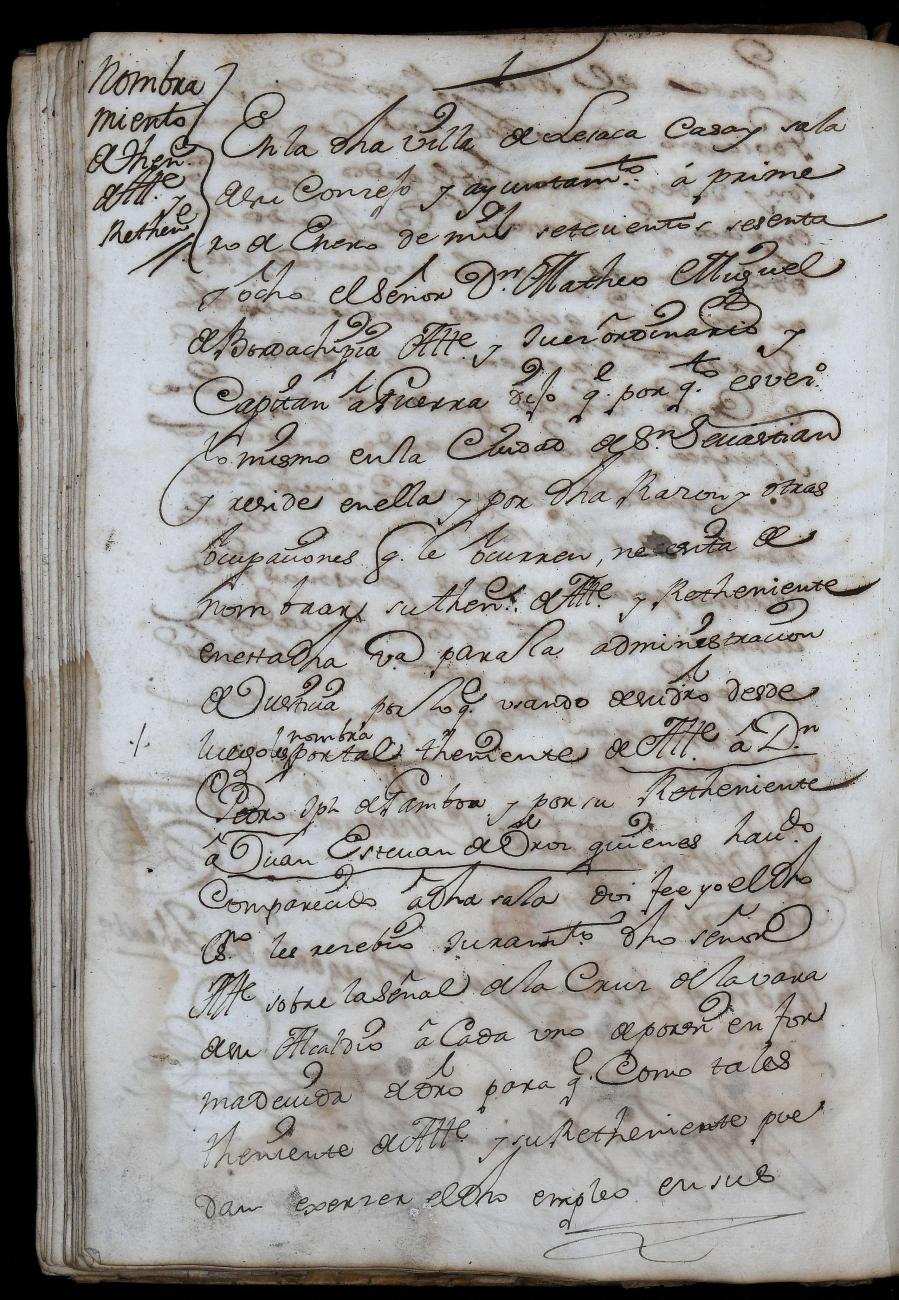 Nombra
miento
de Then.te
de Alc.e
Rethen.te
En la dha villa de Lesaca Casa y sala
de su Concejo y ayuntam.to á prime
ro de Enero de mil setecientos sesenta
y ocho el Señor Dn Matheo Miguel
de Bordachipia Alc.e y Juez ordinario y
Capitan a Guerra dijo q.e por q.to es vez.o
lo mismo en la Ciudad de Sn Sevastian
y reside en ella y por dha Razon y otras
ocupaciones q. le ocurren, necesita de
nombrar su Then.te de Alc.e y Retheniente
en esta dha v.a para la administracion
de Justicia por lo q.e usando de su dro desde
luego les nombra por tal theniente de Alc.e â Dn
Pedro Jph de Gamboa y por su Retheniente
â Juan Estevan de quienes haud.o
Comparecido â dha sala doi fee yo el dho
Es.no les recebio Juram.to dho señor
Alc.e sobre la señal de la Cruz de la vara
de su Alcaldio â Cada uno de por si en for
ma devida de dro para q.e Como tales
theniente de Alc.e y su Retheniente pue
dan exerzer el dho empleo en sus